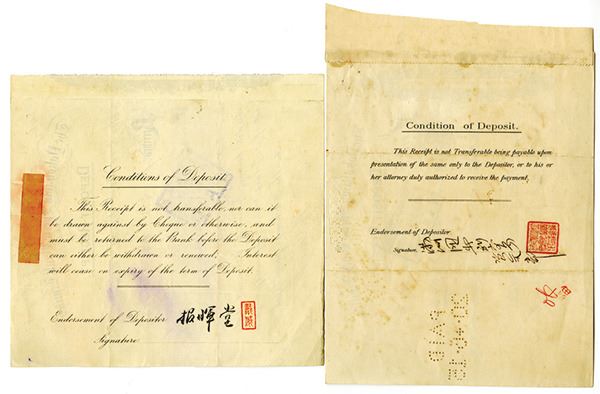 Conditions of Deposit.
This Receipt is not transferable, nor can it
be drawn against by Cheque or otherwise, and
must be returned to the Bank before the Deposit
can either be withdrawn or renewed. Interest
will cease on expiry of the term of Deposit.
Endorsement of Depositor 报暉堂
Signature
Condition of Deposit.
This Receipt is not Transferable being payable upon
presentation of the same only to the Depositor, or to his
or her attorney duly authorized to receive the payment.
Endorsement of Depositor
Signature
PAID